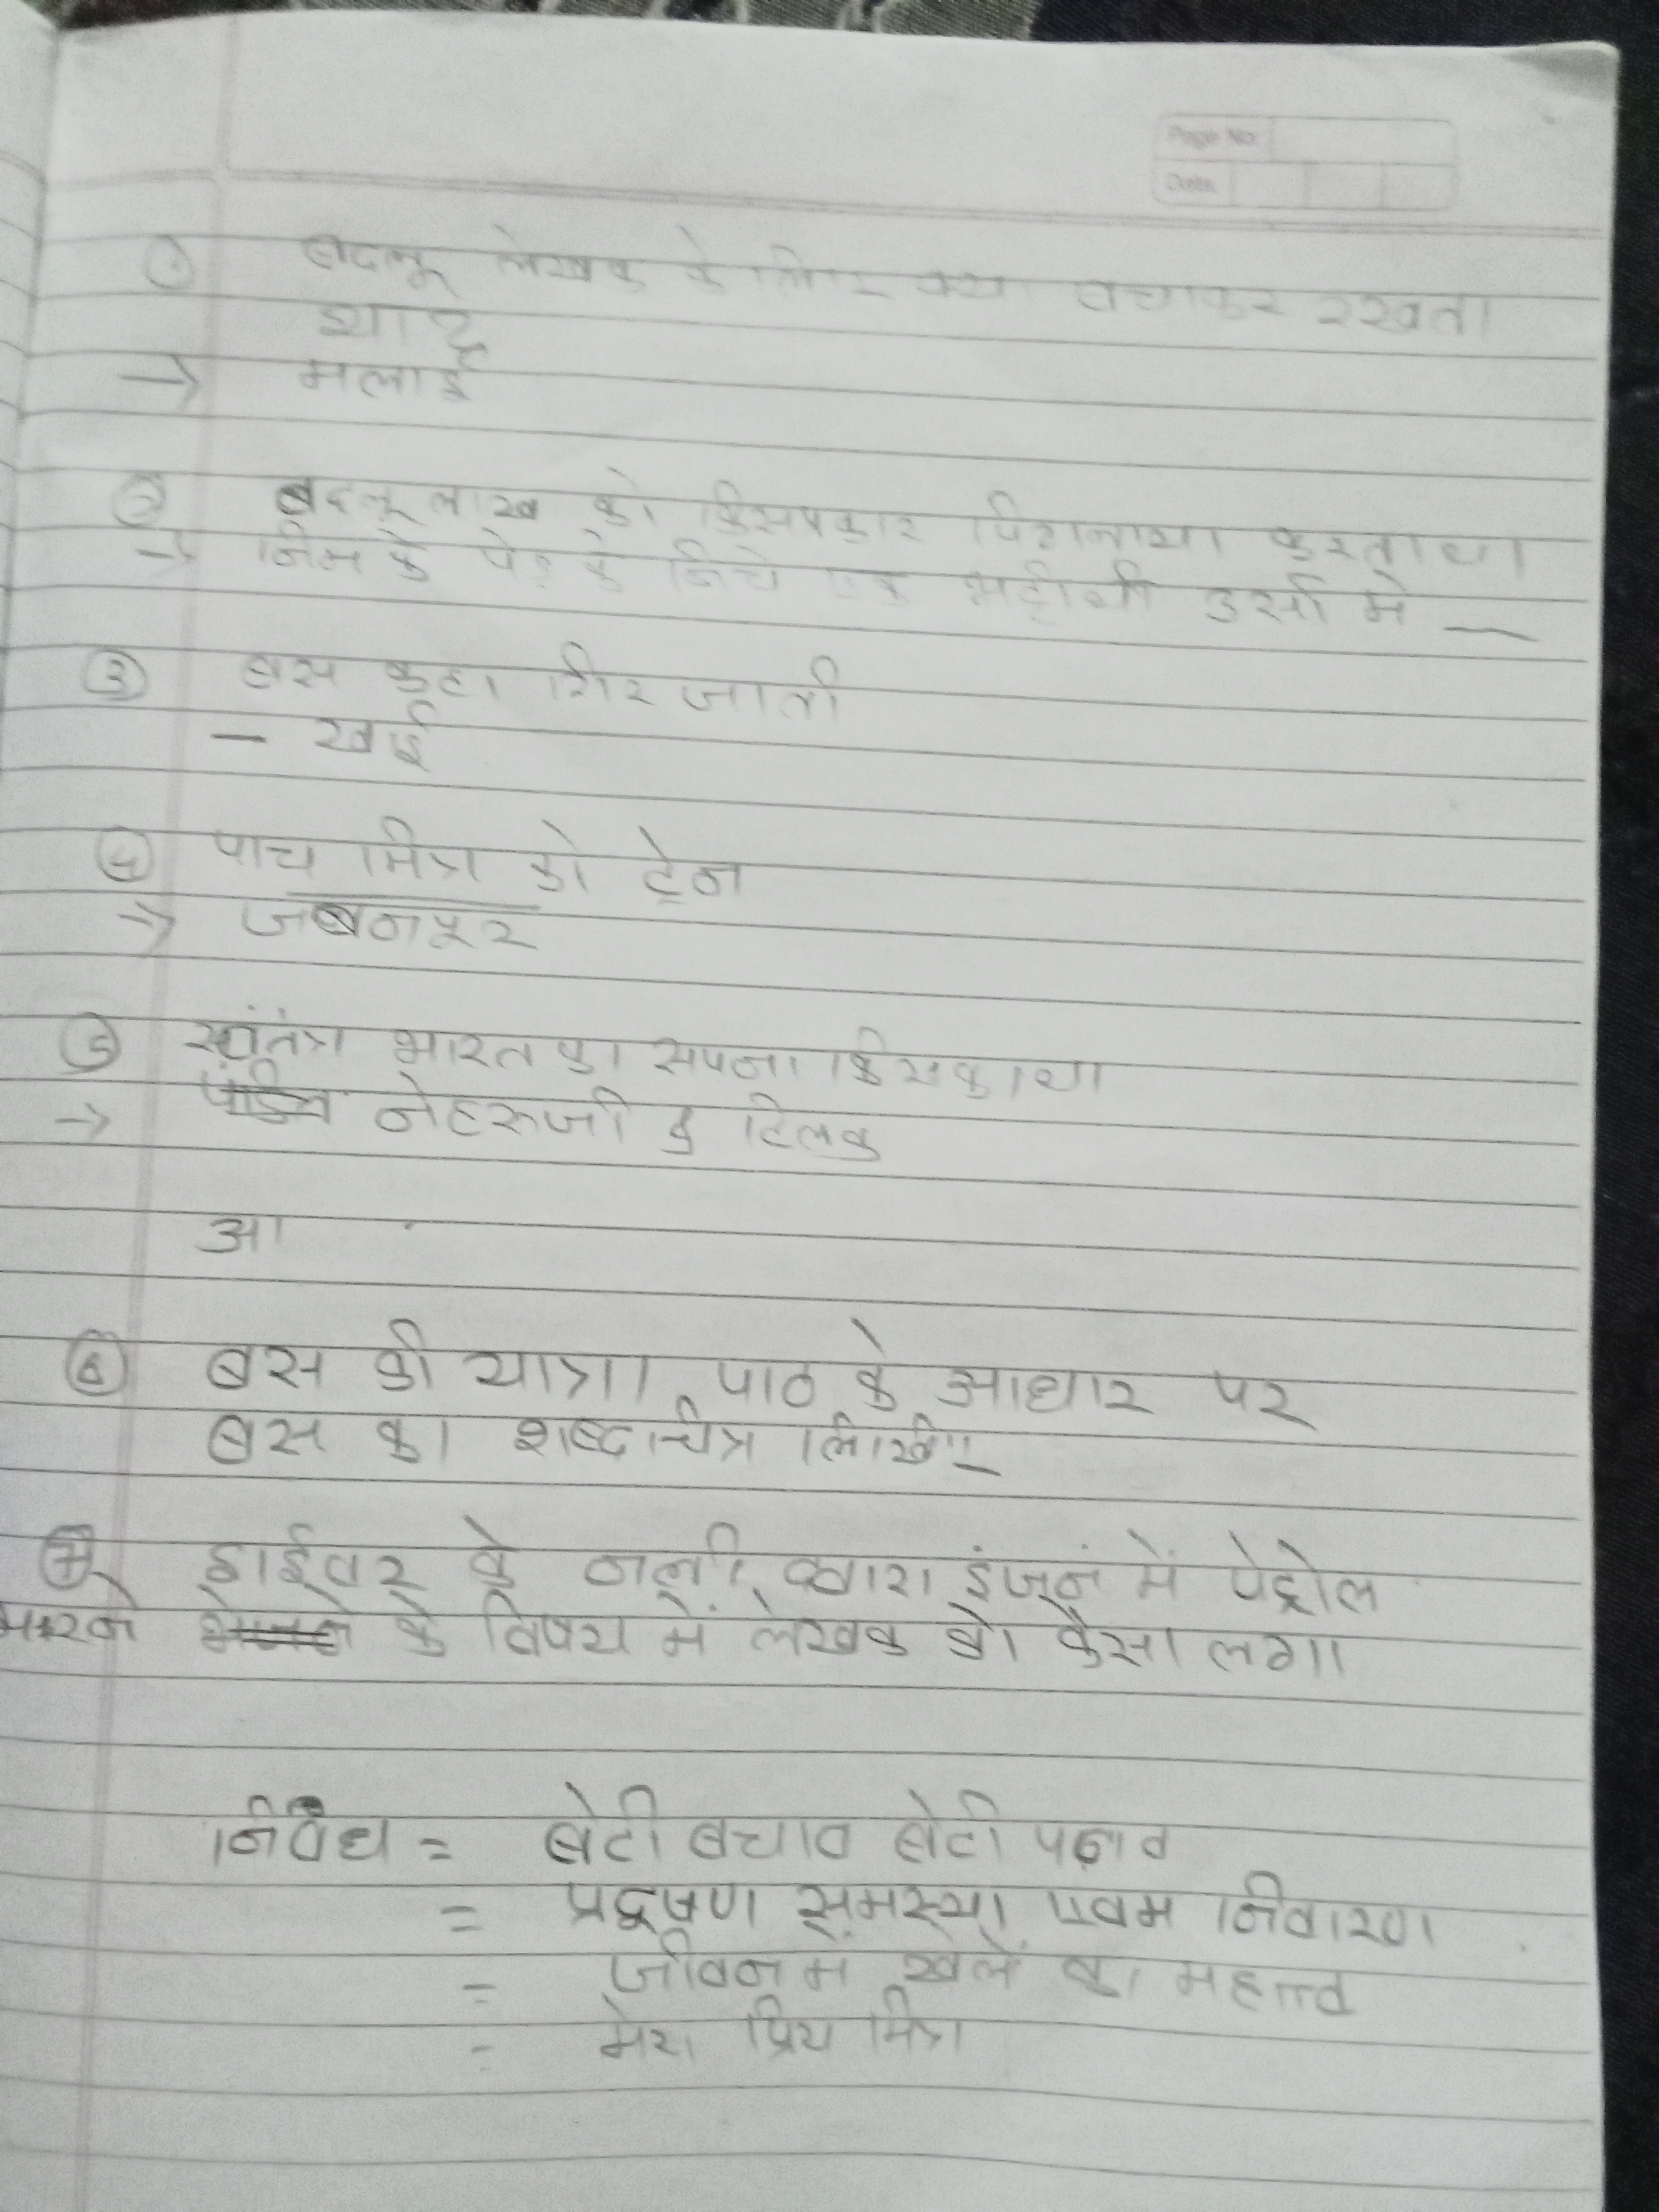 Page No
Date
① बदलू लेखक के लिए क्या बचाकर रखता
था ?
→ मलाई
② बदलू लाख को किसप्रकार पिगलाया करता था
→ निम के पेड़ के निचे एक भट्टी थी उसी मे —
③ बस कहा गिर जाती
— खाई
④ पाच मित्र को ट्रेन
→ जबलपूर
⑤ स्वंतंत्र भारत का सपना किसका था
→ नेहरुजी व टिलक
आ
⑥ बस की यात्रा पाठ के आधार पर
बस का शब्दचित्र लिखिए —
⑦ ड्राईवर के नली द्वारा इंजन में पेट्रोल
भरने के विषय में लेखक को कैसा लगा
निबंध = बेटी बचाव बेटी पढ़ाव
= प्रदूषण समस्या एवम निवारण
= जीवन में खेलों का महत्त्व
= मेरा प्रिय मित्र